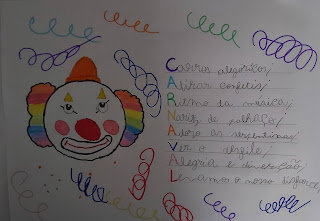 Carros alegóricos;
Atirar confetis;
Ritmo da música;
Nariz de palhaço;
Adoro as serpentinas;
Ver o desfile;
Alegria e diversão;
Levamos o nosso